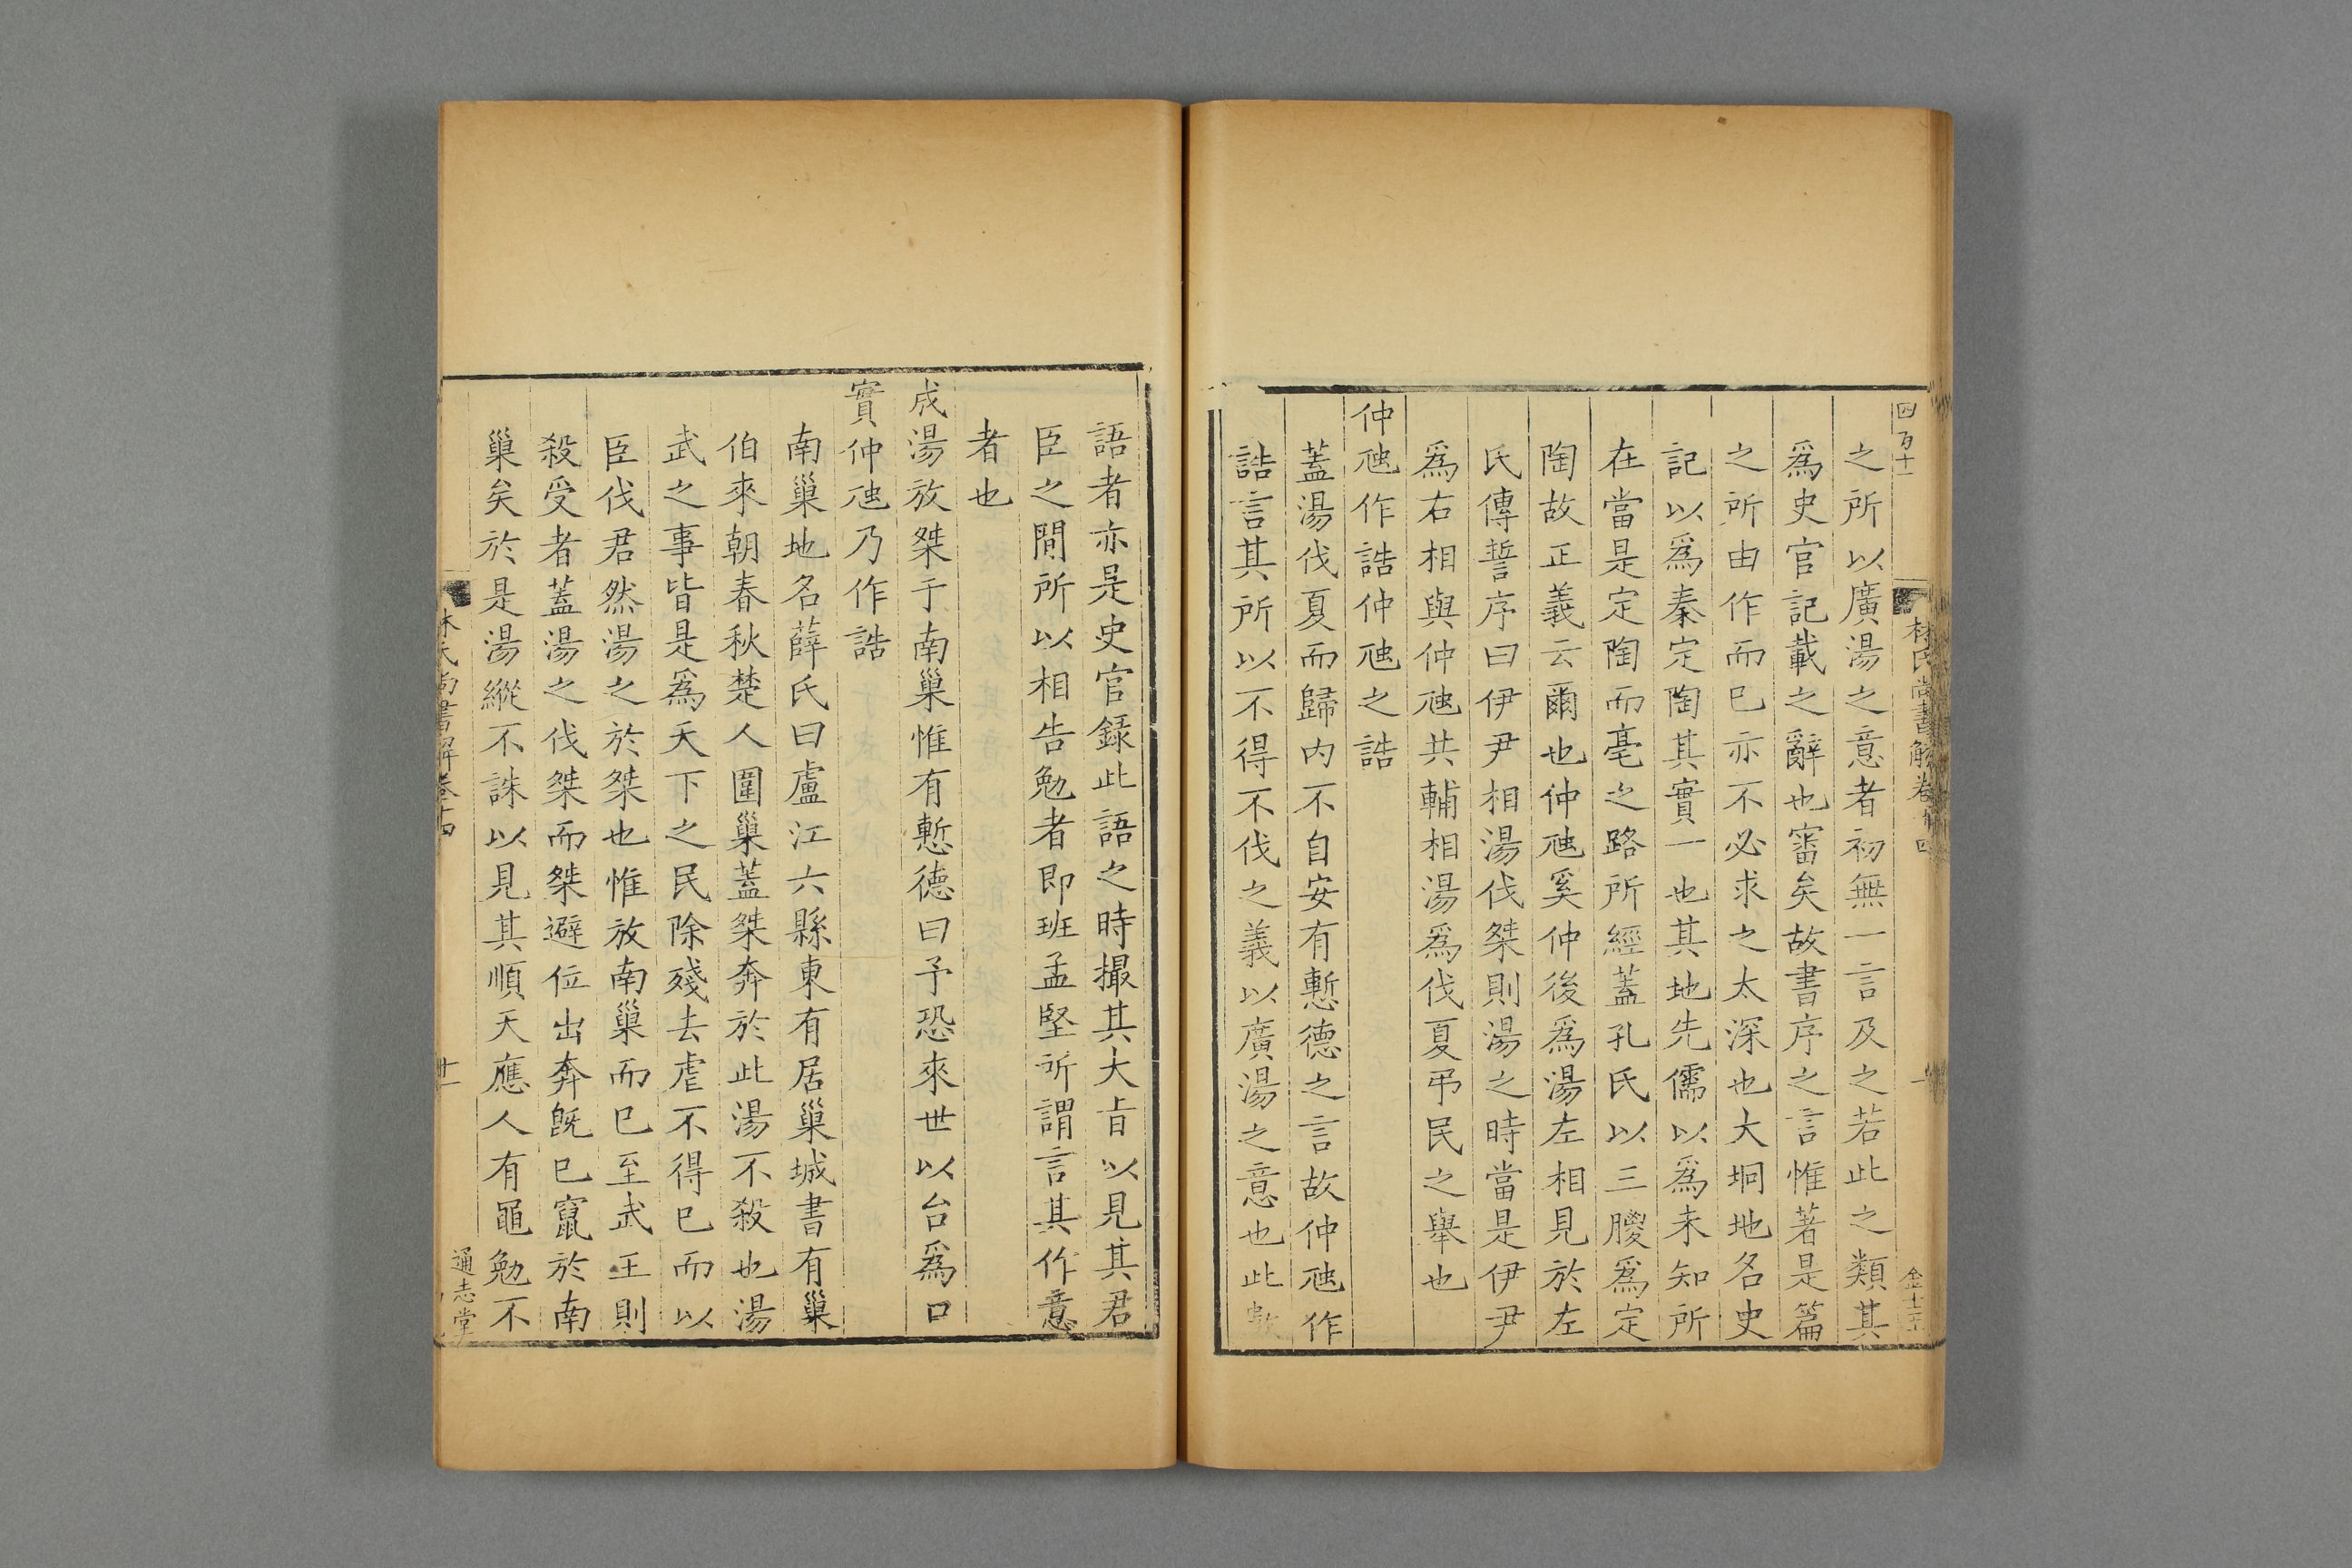 四百十一
林氏尚書解卷十四
之所以廣湯之意者初無一言及之若此之類其
爲史官記載之辭也審矣故書序之言惟著是篇
之所由作而已亦不必求之太深也大坰地名史
記以爲秦定陶其實一也其地先儒以爲未知所
在當是定陶而亳之路所經蓋孔氏以三朡爲定
陶故正義云爾也仲虺奚仲後爲湯左相見於左
氏傳誓序曰伊尹相湯伐桀則湯之時當是伊尹
爲右相與仲虺共輔相湯爲伐夏弔民之舉也
仲虺作誥仲虺之誥
蓋湯伐夏而歸内不自安有慙德之言故仲虺作
誥言其所以不得不伐之義以廣湯之意也此數
語者亦是史官録此語之時撮其大㫖以見其君
臣之間所以相告勉者即班孟堅所謂言其作意
者也
成湯放桀于南巢惟有慙德曰予恐來世以台爲口
實仲虺乃作誥
南巢地名薛氏曰盧江六縣東有居巢城書有巢
伯來朝春秋楚人圍巢蓋桀奔於此湯不殺也湯
武之事皆是爲天下之民除殘去虐不得已而以
臣伐君然湯之於桀也惟放南巢而已至武王則
殺受者蓋湯之伐桀而桀避位出奔旣已竄於南
巢矣於是湯縱不誅以見其順天應人有黽勉不
林氏尚書解卷十四
廿一
通志堂